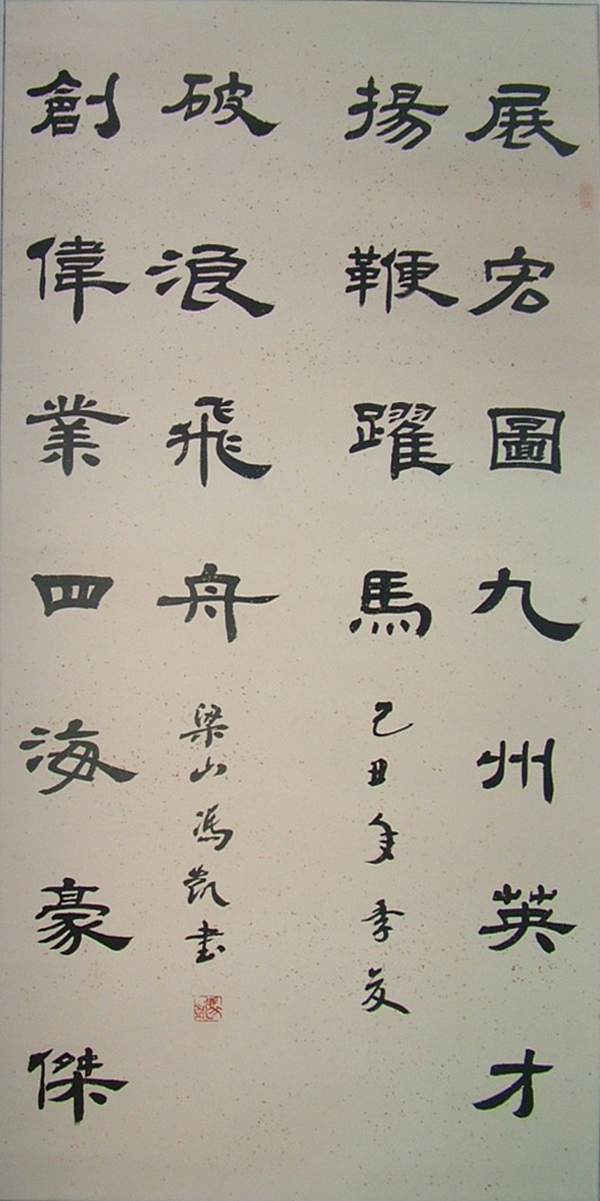 展宏圖九州英才
揚鞭躍馬 己丑年季夏
破浪飛舟 梁山馮凱書
創偉業四海豪傑